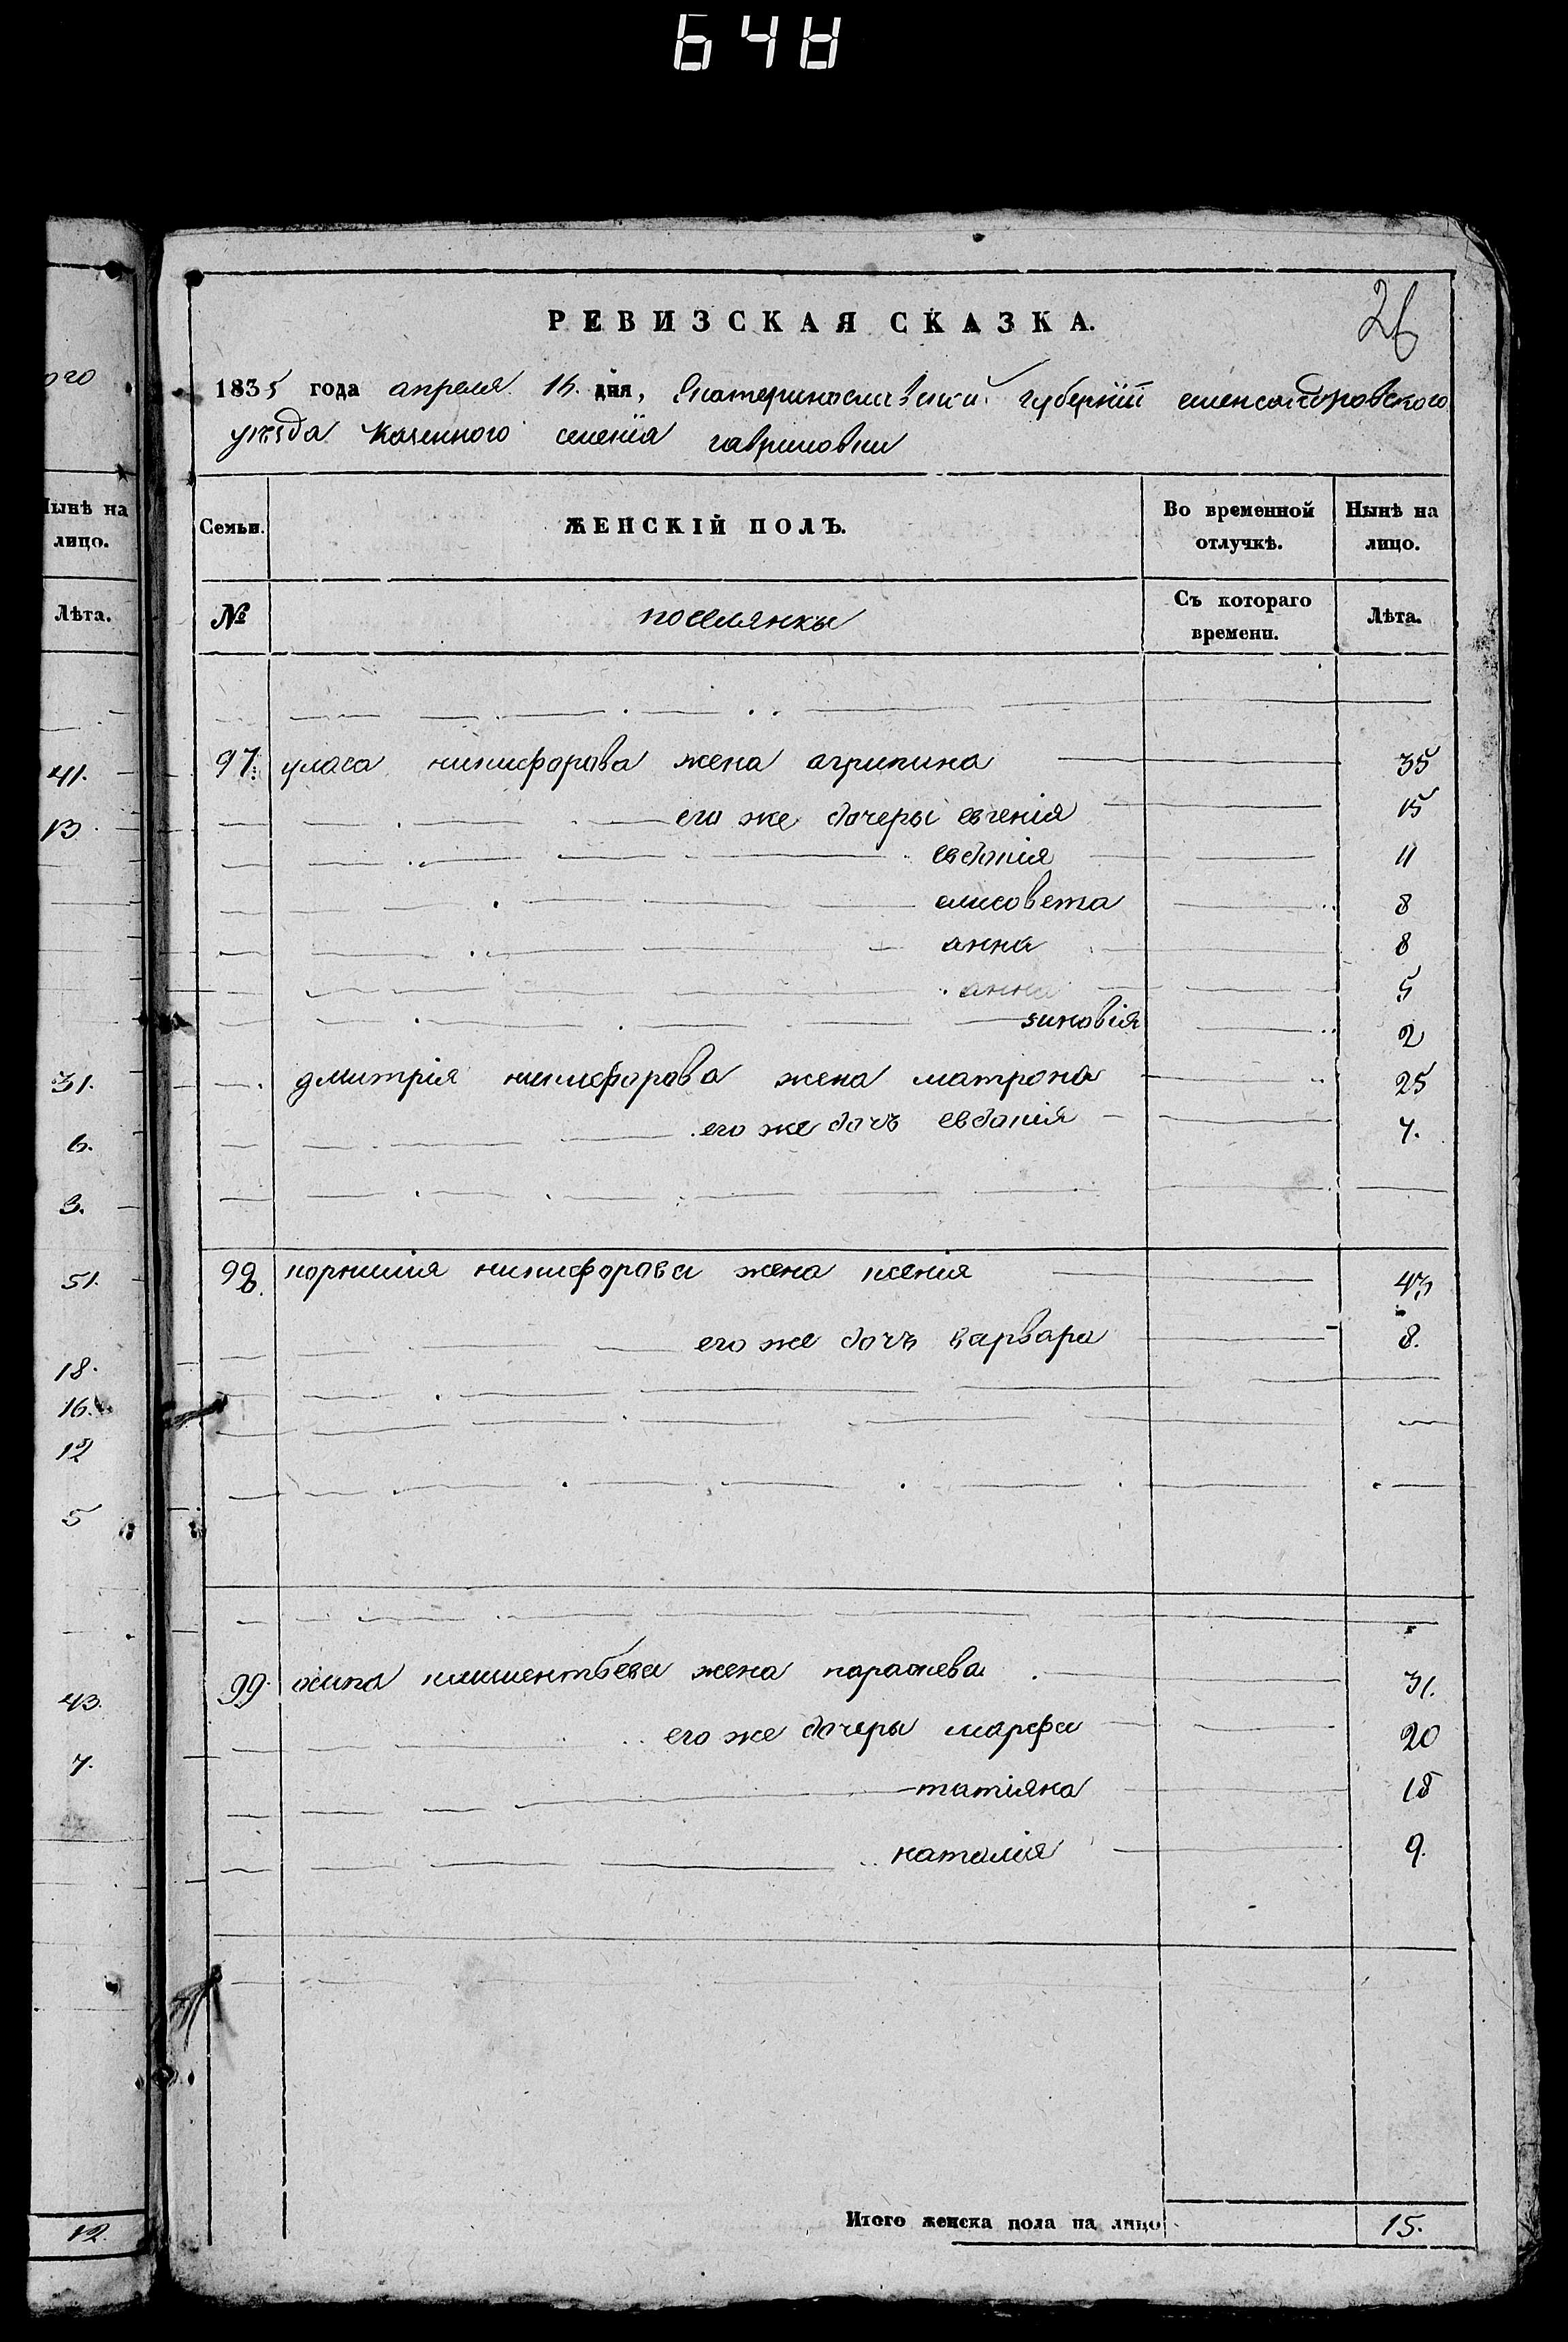 648
ого
Нынѣ на
лицо.
Лѣта.
41.
13.
31.
6.
3.
51.
18.
16.
12
5
43.
7.
12.
26
РЕВИЗСКАЯ СКАЗКА.
1835 года апреля 14. дня, Екатеринославской губерніи александровского
уѣзда казенного селенія гавриловки
Семьи. ЖЕНСКІЙ ПОЛЪ. Во временной отлучкѣ. Нынѣ на лицо.
№ поселянки Съ котораго времени. Лѣта.
97. уласа никифорова жена агрипина 35
его же дочеры евгенія 15
евдокія 11
елисовета 8
анна 8
анна 5
зиновія 2
дмитрія никифорова жена матрона 25
его же дочъ евдокія 7.
98. корнилія никифорова жена ксенія 43
его же дочъ варвара 8.
99. осипа климентьева жена параскева 31.
его же дочеры марфа 20
татіяна 18
наталія 9.
Итого женска пола на лицо 15.